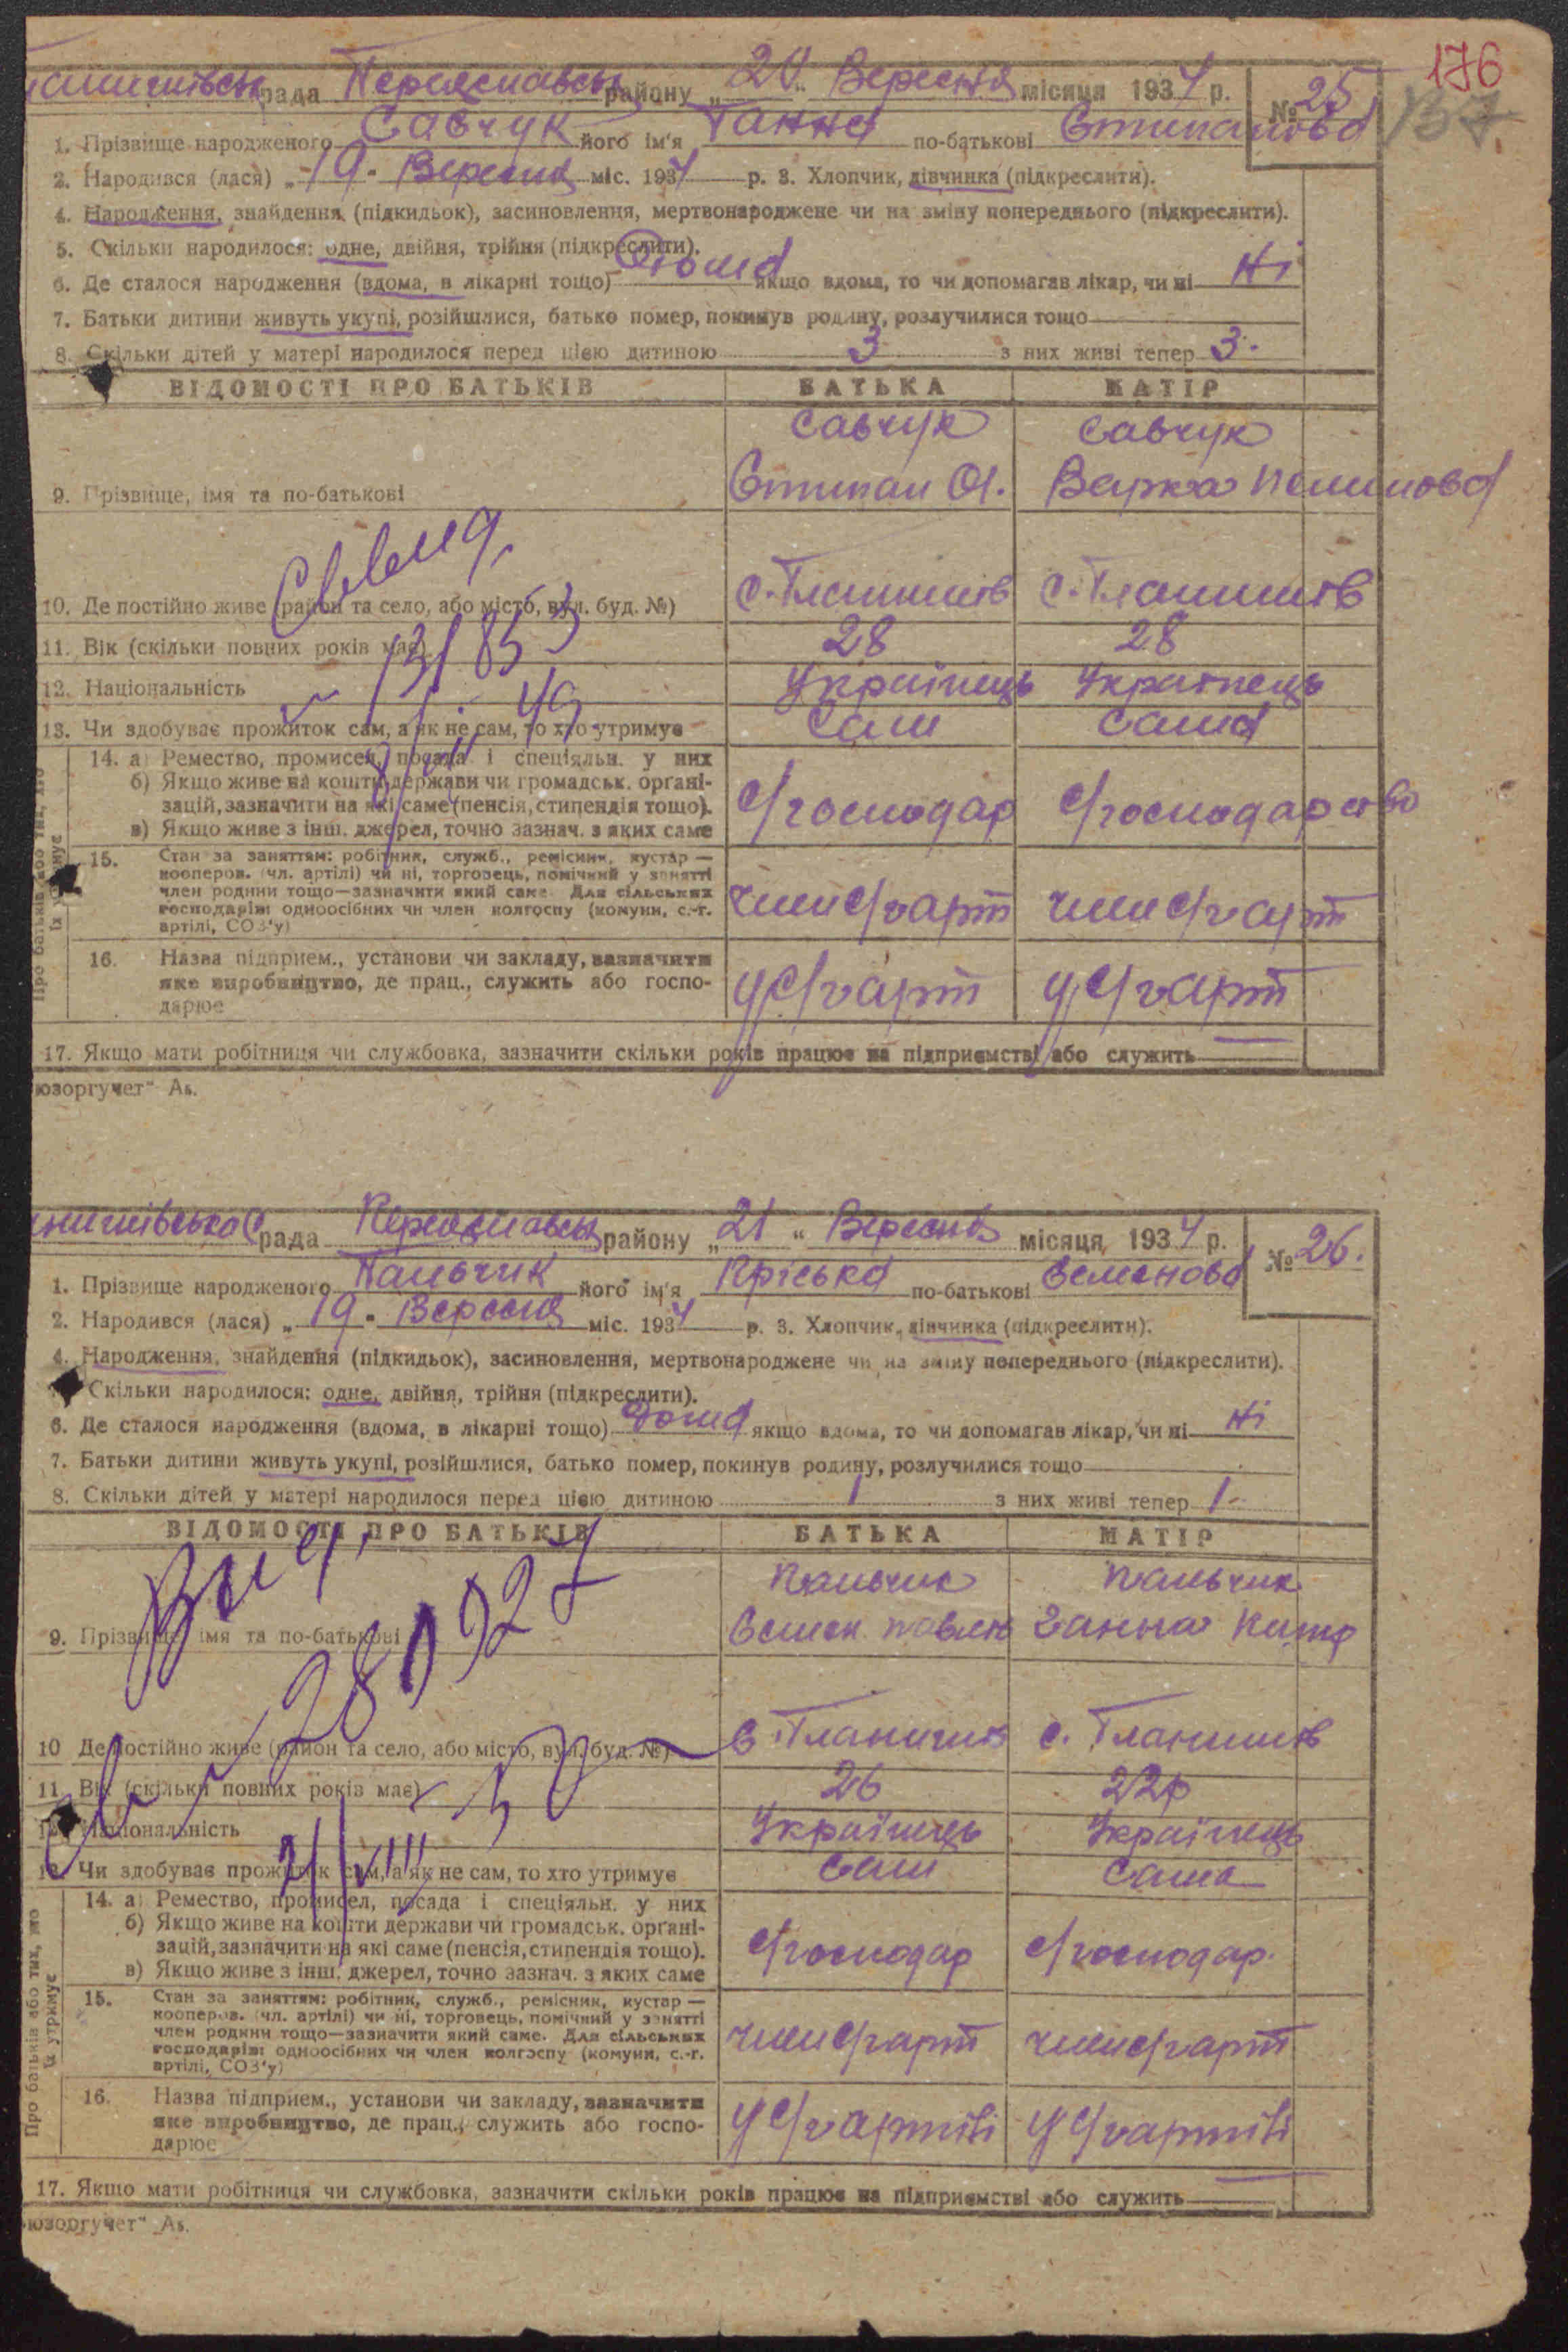 176
137
рада Переяславськ району „20“ Вересня місяця 1934 р. № 25
1. Прізвище народженого Савчук його ім'я Ганна по-батькові Степанова
2. Народився (лася) „19“ Вересня міс. 1934 р. 3. Хлопчик, дівчинка (підкреслити).
4. Народження, знайдення (підкидьок), засиновлення, мертвонароджене чи на зміну попереднього (підкреслити).
5. Скільки народилося: одне, двійня, трійня (підкреслити).
6. Де сталося народження (вдома, в лікарні тощо) Дома якщо вдома, то чи допомагав лікар, чи ні Ні
7. Батьки дитини живуть укупі, розійшлися, батько помер, покинув родину, розлучилися тощо
8. Скільки дітей у матері народилося перед цією дитиною 3 з них живі тепер 3.
ВІДОМОСТІ ПРО БАТЬКІВ БАТЬКА МАТІР
Савчук Савчук
9. Прізвище, імя та по-батькові Степан Ол. Варка
10. Де постійно живе (район та село, або місто, вул. буд. №) с. Гланишів с. Гланишів
11. Вік (скільки повних років має) 28 28
12. Національність Українець Українець
13. Чи здобуває прожиток сам, а як не сам, то хто утримує Сам Сама
14. а) Ремество, промисел, посада і спеціяльн. у них
б) Якщо живе на кошти держави чи громадськ. органі-
зацій, зазначити на які саме (пенсія, стипендія тощо). С/господар С/господарство
в) Якщо живе з інш. джерел, точно зазнач. з яких саме
Про батьків або тих, хто їх утримує
15. Стан за заняттям: робітник, служб., ремісник, кустар —
кооперов. (чл. артілі) чи ні, торговець, помічний у занятті
член родини тощо—зазначити який саме. Для сільських
господарів: одноосібних чи член колгоспу (комуни, с.-г. член С/г арт член С/г арт
артілі, СОЗ'у)
16. Назва підприєм., установи чи закладу, зазначити
яке виробництво, де прац., служить або госпо- у С/г арт у С/г арт
дарює
17. Якщо мати робітниця чи службовка, зазначити скільки років працює на підприємстві або служить
юзоргучет“ А5.
рада Переяславськ району „21“ Вересня місяця 1934 р. № 26.
1. Прізвище народженого Пальчик його ім'я Пріська по-батькові Семенова
2. Народився (лася) „19“ Вересня міс. 1934 р. 3. Хлопчик, дівчинка (підкреслити).
4. Народження, знайдення (підкидьок), засиновлення, мертвонароджене чи на зміну попереднього (підкреслити).
Скільки народилося: одне, двійня, трійня (підкреслити).
6. Де сталося народження (вдома, в лікарні тощо) Дома якщо вдома, то чи допомагав лікар, чи ні Ні
7. Батьки дитини живуть укупі, розійшлися, батько помер, покинув родину, розлучилися тощо
8. Скільки дітей у матері народилося перед цією дитиною 1 з них живі тепер 1
ВІДОМОСТІ ПРО БАТЬКІВ БАТЬКА МАТІР
Пальчик Пальчик
9. Прізвище, імя та по-батькові Семен Павлов Ганна
10 Де постійно живе (район та село, або місто, вул. буд. №) с Гланишів с. Гланишів
11. Вік (скільки повних років має) 26 22р
12. Національність Українець Українець
13. Чи здобуває прожиток сам, а як не сам, то хто утримує Сам Сама
14. а) Ремество, промисел, посада і спеціяльн. у них
б) Якщо живе на кошти держави чи громадськ. органі-
зацій, зазначити на які саме (пенсія, стипендія тощо). С/господар С/господар.
в) Якщо живе з інш. джерел, точно зазнач. з яких саме
Про батьків або тих, хто їх утримує
15. Стан за заняттям: робітник, служб., ремісник, кустар —
кооперов. (чл. артілі) чи ні, торговець, помічний у занятті
член родини тощо—зазначити який саме. Для сільських
господарів: одноосібних чи член колгоспу (комуни, с.-г. член С/г арт член С/г арт
артілі, СОЗ'у)
16. Назва підприєм., установи чи закладу, зазначити
яке виробництво, де прац., служить або госпо- у С/г артілі у С/г артілі
дарює
17. Якщо мати робітниця чи службовка, зазначити скільки років працює на підприємстві або служить
юзоргучет“ А5.